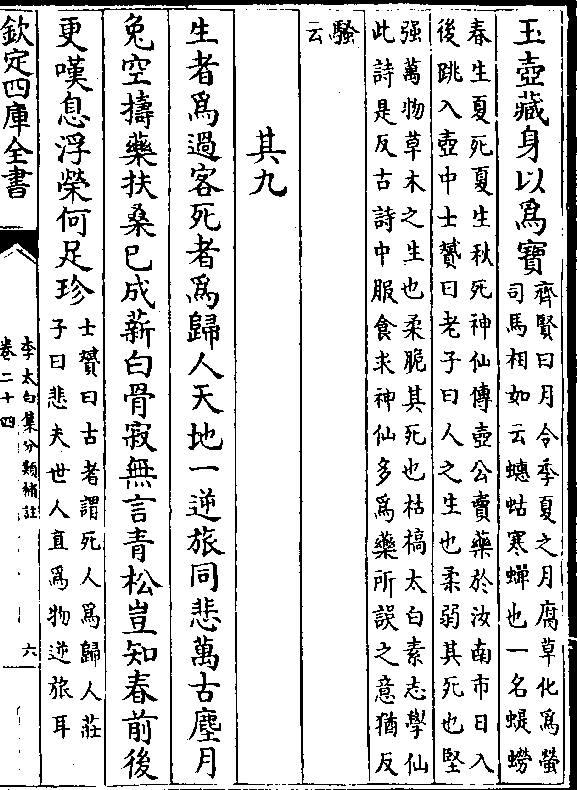 玉壺藏身以爲寶
齊賢曰月令季夏之月腐草化爲螢
司馬相如云蟪蛄寒蟬也一名蝭蟧
春生夏死夏生秋死神仙傳壺公賣藥於汝南市日入
後跳入壺中士贇曰老子曰人之生也柔弱其死也堅
强萬物草木之生也柔脆其死也枯槁太白素志學仙
此詩是反古詩中服食求神仙多爲藥所誤之意猶反
騷
云
其九
生者爲過客死者爲歸人天地一逆旅同悲萬古塵月
兔空擣藥扶桑已成薪白骨寂無言青松豈知春前後
更嘆息浮榮何足珍
士贇曰古者謂死人爲歸人莊
子曰悲夫世人直爲物逆旅耳
欽定四庫全書
李太白集分類補註
卷二十四
六